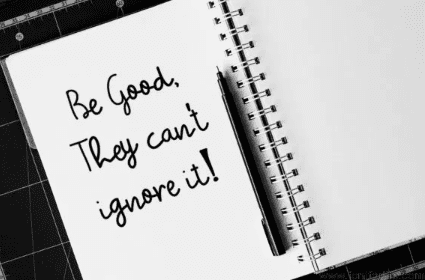 Be Good,
They can't
ignore it!